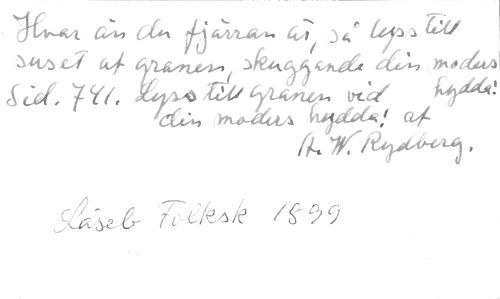 Hvar än du fjärran är, så lyss till
suset af granen, skuggande din moders
hydda!
Sid. 741. Lyss till granen vid
din moders hydda! af
A. W. Rydberg.
Läseb Folksk 1899